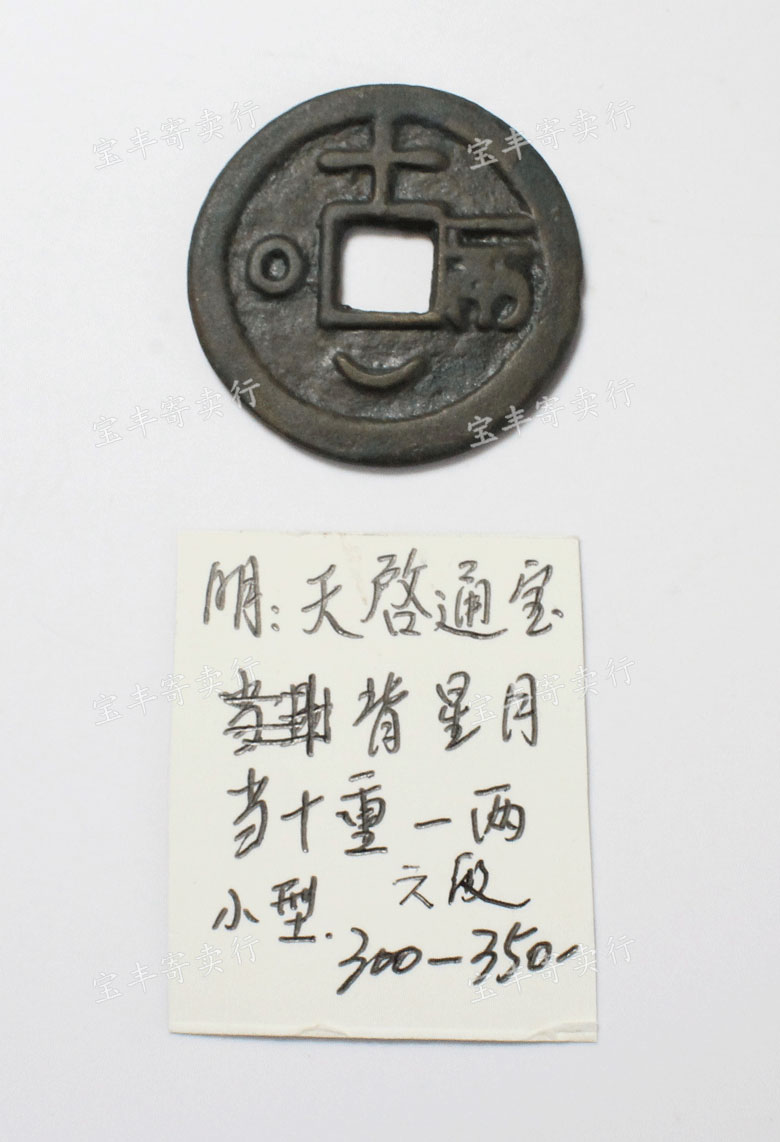 十
一两
明:天启通宝
背星月
当十重一两
小型. 六段
300-350-
宝丰寄卖行
宝丰寄卖行
宝丰寄卖行
宝丰寄卖行
宝丰寄卖行
宝丰寄卖行
宝丰寄卖行
宝丰寄卖行